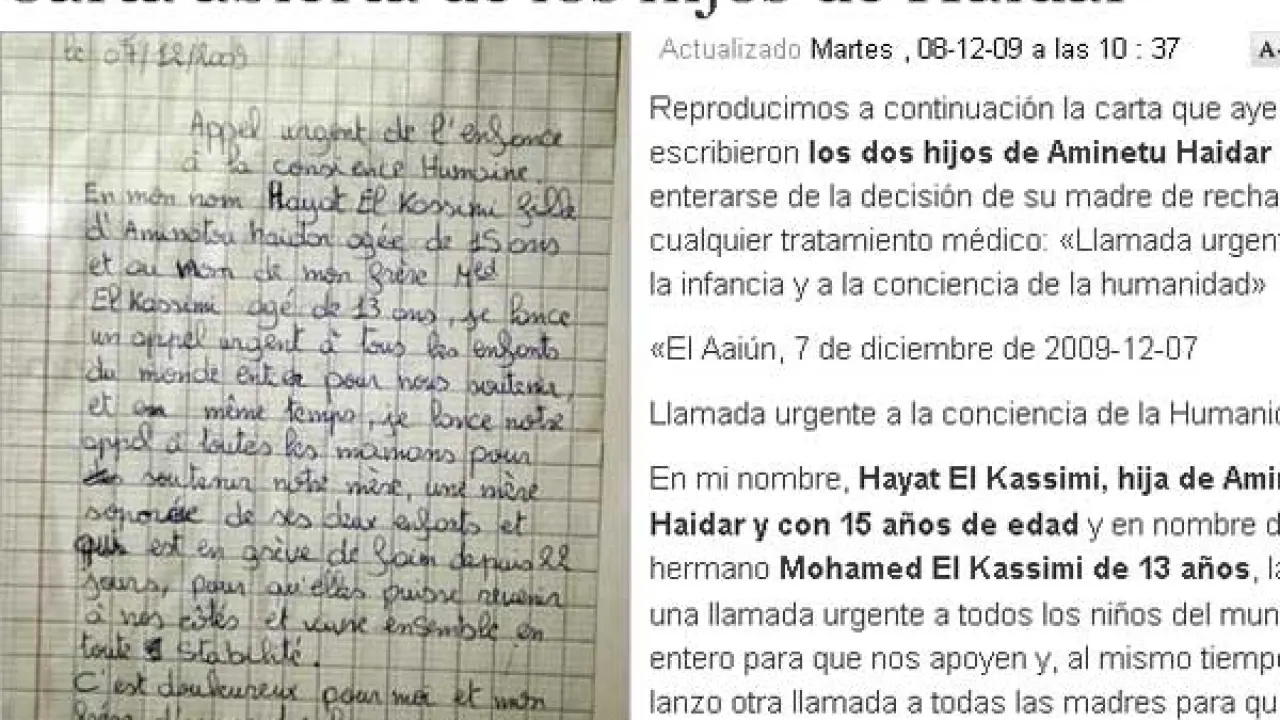 Carta abierta de los hijos de Haidar
le 07/12/2009
Appel urgent de l'enfance
à la consience Humaine.
En mon nom Hayat El Kassimi fille
d'Aminatou haidar agée de 15 ans
et au nom de mon frère Med
El Kassimi agé de 13 ans, je lance
un appel urgent à tous les enfants
du monde entier pour nous soutenir,
et en même temps, je lance notre
appel à toutes les mamans pour
soutenir notre mère, une mère
séparée de ses deux enfants et
qui est en grève de faim depuis 22
jours, pour qu'elles puisse revenir
à nos côtés et vivre ensemble en
toute stabilité.
C'est douloureux pour moi et mon
Actualizado Martes , 08-12-09 a las 10 : 37
A-
Reproducimos a continuación la carta que aye
escribieron los dos hijos de Aminetu Haidar
enterarse de la decisión de su madre de recha
cualquier tratamiento médico: «Llamada urgent
la infancia y a la conciencia de la humanidad»
«El Aaiún, 7 de diciembre de 2009-12-07
Llamada urgente a la conciencia de la Humanid
En mi nombre, Hayat El Kassimi, hija de Amin
Haidar y con 15 años de edad y en nombre d
hermano Mohamed El Kassimi de 13 años, la
una llamada urgente a todos los niños del mun
entero para que nos apoyen y, al mismo tiempo
lanzo otra llamada a todas las madres para qu